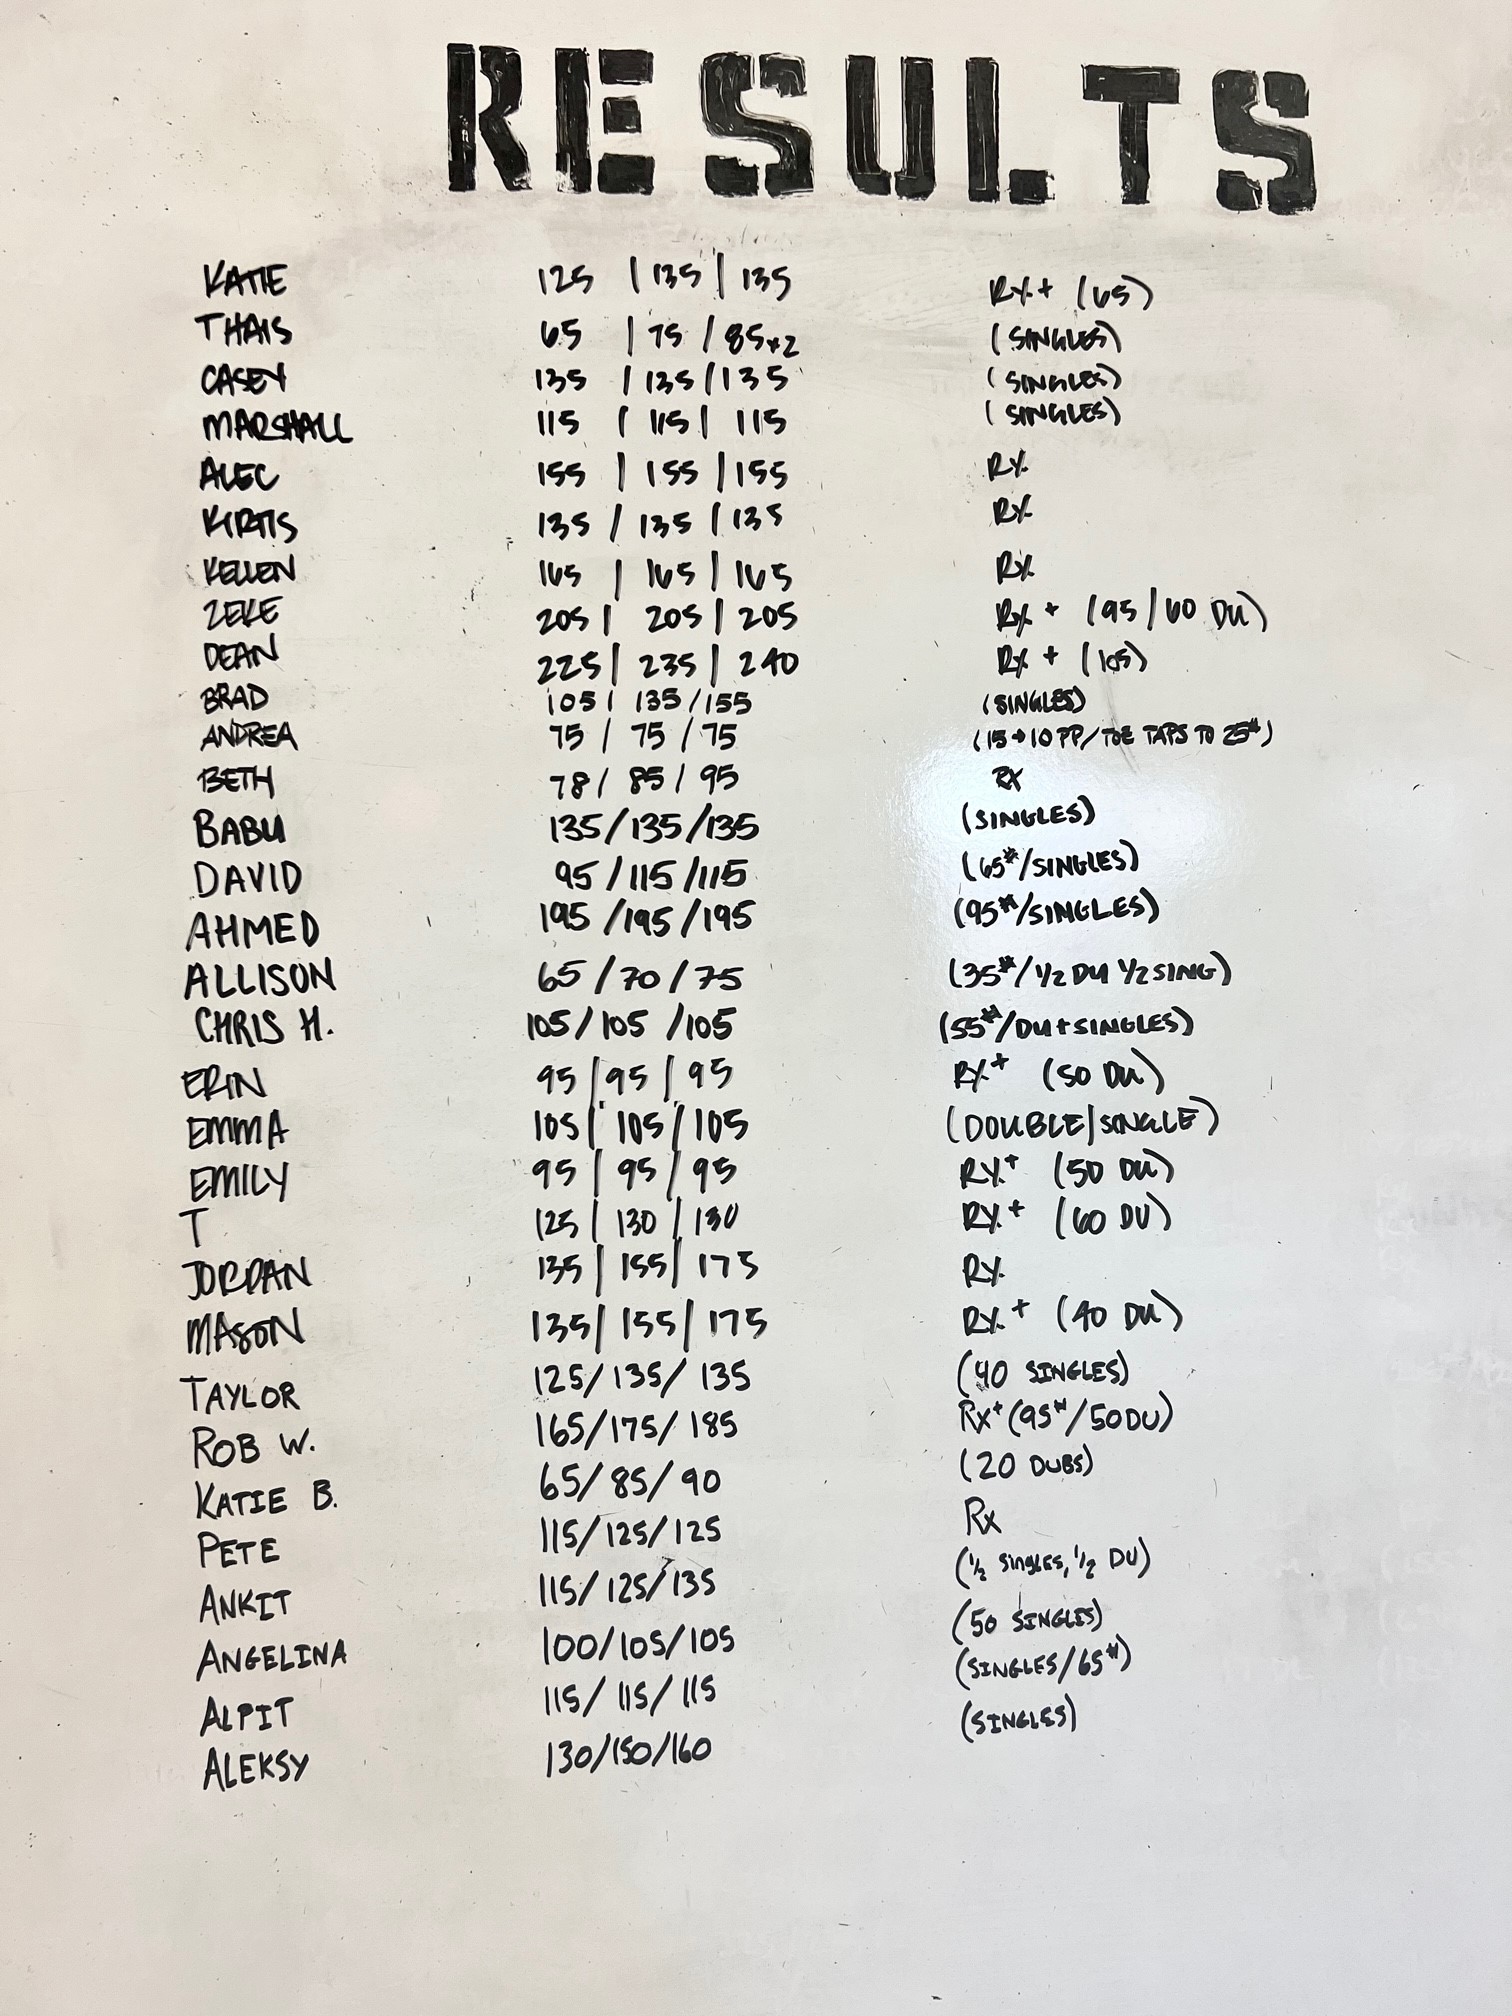 RESULTS
KATIE 125 | 135 | 135 RX+ (65)
THAIS 65 | 75 / 85x2 (SINGLES)
CASEY 135 / 135 / 135 (SINGLES)
MARSHALL 115 | 115 | 115 (SINGLES)
ALEC 155 | 155 | 155 RX
KIRTIS 135 / 135 | 135 RX
KELLEN 165 | 165 | 165 RX
ZEKE 205 | 205 | 205 RX + (95 / 60 DU)
DEAN 225 | 235 | 240 RX + (105)
BRAD 105 / 135 / 155 (SINGLES)
ANDREA 75 / 75 / 75 (15→10 PP/TOE TAPS TO 25#)
BETH 78 / 85 / 95 RX
BABU 135/135/135 (SINGLES)
DAVID 95/115/115 (65#/SINGLES)
AHMED 195/195/195 (95#/SINGLES)
ALLISON 65/70/75 (35#/1/2 DU 1/2 SING)
CHRIS H. 105/105/105 (55#/DU+SINGLES)
ERIN 95 | 95 | 95 RX+ (50 DU)
EMMA 105 | 105 / 105 (DOUBLE/SINGLE)
EMILY 95 | 95 / 95 RX+ (50 DU)
T 125 | 130 | 130 RX+ (60 DU)
JORDAN 135 | 155 | 175 RX
MASON 135 / 155 / 175 RX+ (40 DU)
TAYLOR 125/135/135 (40 SINGLES)
ROB W. 165/175/185 RX+ (95#/50 DU)
KATIE B. 65/85/90 (20 DUBS)
PETE 115/125/125 RX
ANKIT 115/125/135 (1/2 SINGLES, 1/2 DU)
ANGELINA 100/105/105 (50 SINGLES)
ALPIT 115/115/115 (SINGLES/65#)
ALEKSY 130/150/160 (SINGLES)